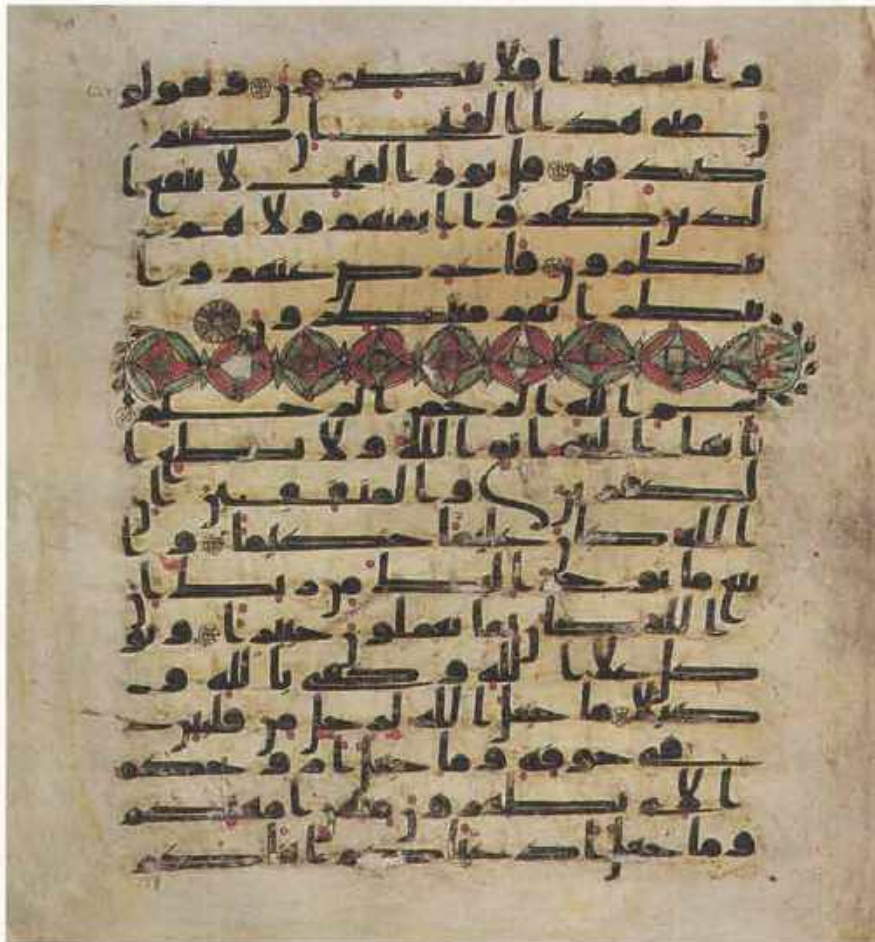 وانفسهم افلا يبصرون ويقولو
ن متى هذا الفتح ان كنتم
صدقين قل يوم الفتح لا ينفع ا
لذين كفروا ايمنهم ولا هم
ينظرون فاعرض عنهم وا
نتظر انهم منتظرون
بسم الله الرحمن الرحيم
يايها النبي اتق الله ولا تطع ا
لكفرين والمنفقين ان
الله كان عليما حكيما وا
تبع ما يوحى اليك من ربك ان
الله كان بما تعملون خبيرا وتو
كل على الله وكفى بالله و
كيلا ما جعل الله لرجل من قلبين
في جوفه وما جعل ازوجكم
الاى تظهرون منهن امهتكم
وما جعل ادعياكم ابناكم